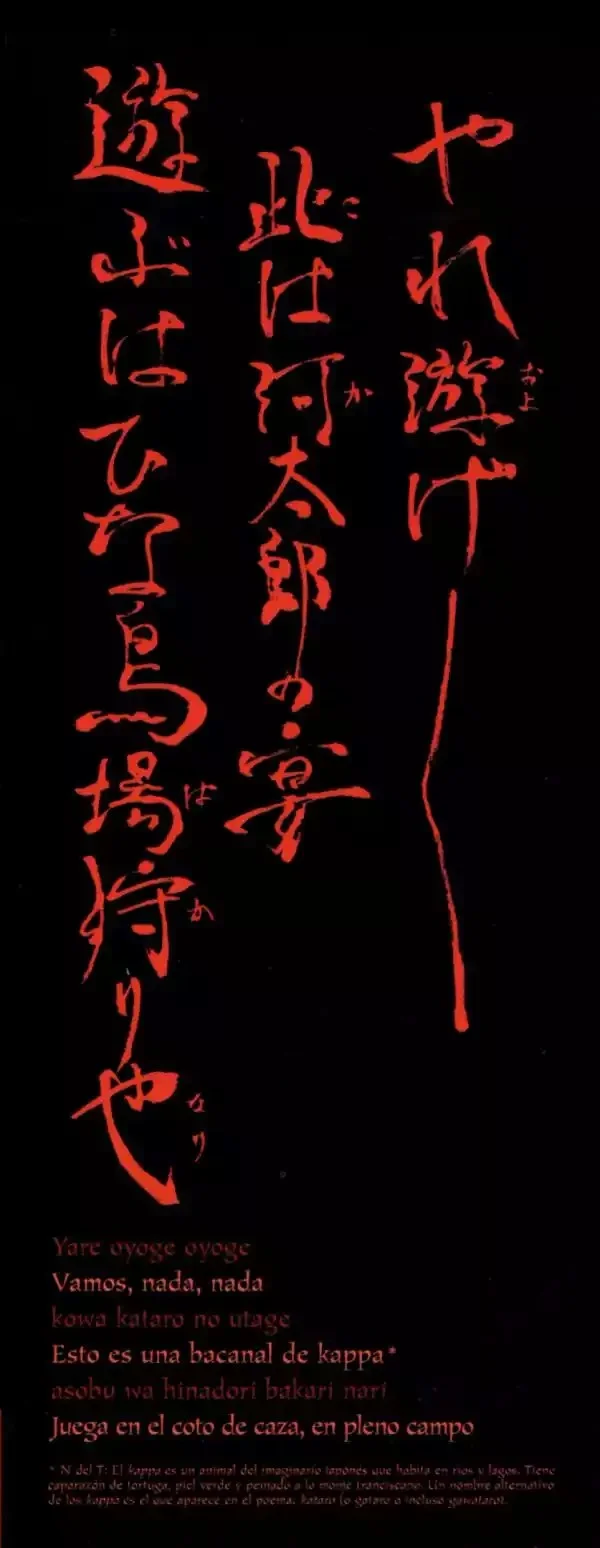 やれ游げ〳〵
およ
此は河太郎の宴
こ
か
遊ぶはひな鳥場狩り也
は
か
なり
Yare oyoge oyoge
Vamos, nada, nada
kowa kataro no utage
Esto es una bacanal de kappa*
asobu wa hinadori bakari nari
Juega en el coto de caza, en pleno campo
* N del T: El kappa es un animal del imaginario japonés que habita en ríos y lagos. Tiene
caparazón de tortuga, piel verde y peinado a lo monje franciscano. Un nombre alternativo
de los kappa es el que aparece en el poema, kataro (o gataro o incluso gawataro).